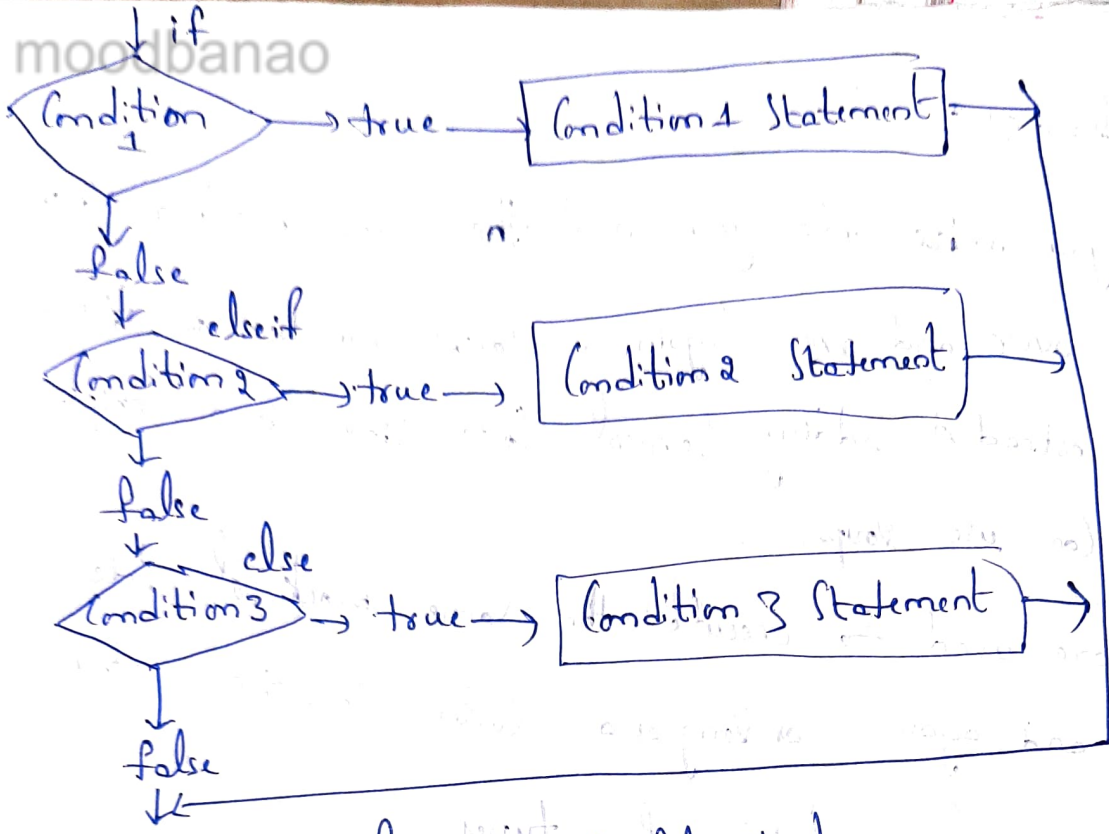 if
moodbanao
Condition 1
true
Condition 1 Statement
false
elseif
Condition 2
true
Condition 2 Statement
false
else
Condition 3
true
Condition 3 Statement
false